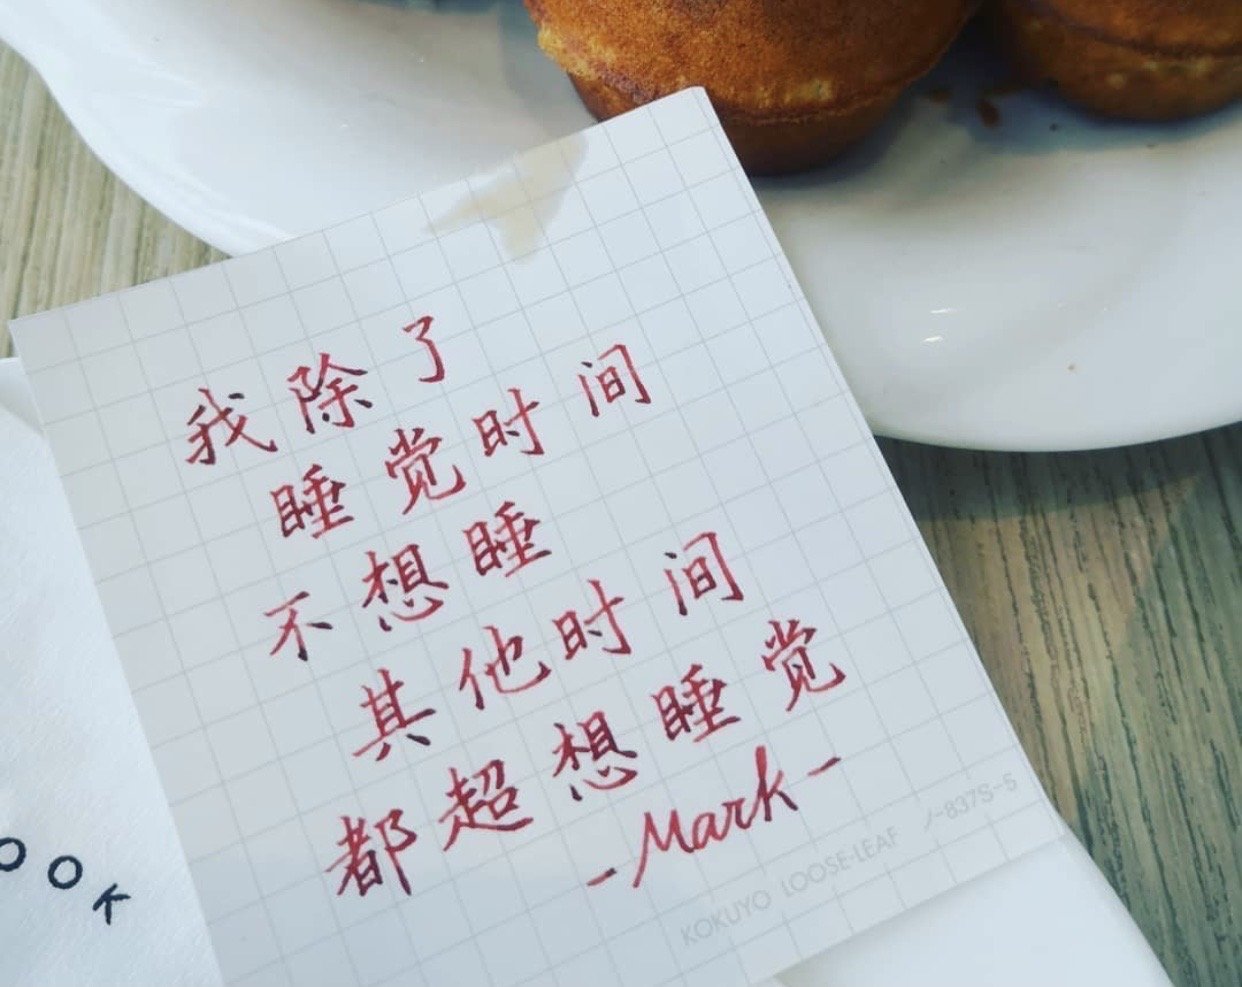 我除了
睡觉时间
不想睡
其他时间
都超想睡觉
-Mark-
KOKUYO LOOSE-LEAF ノ-837S-5
OOK